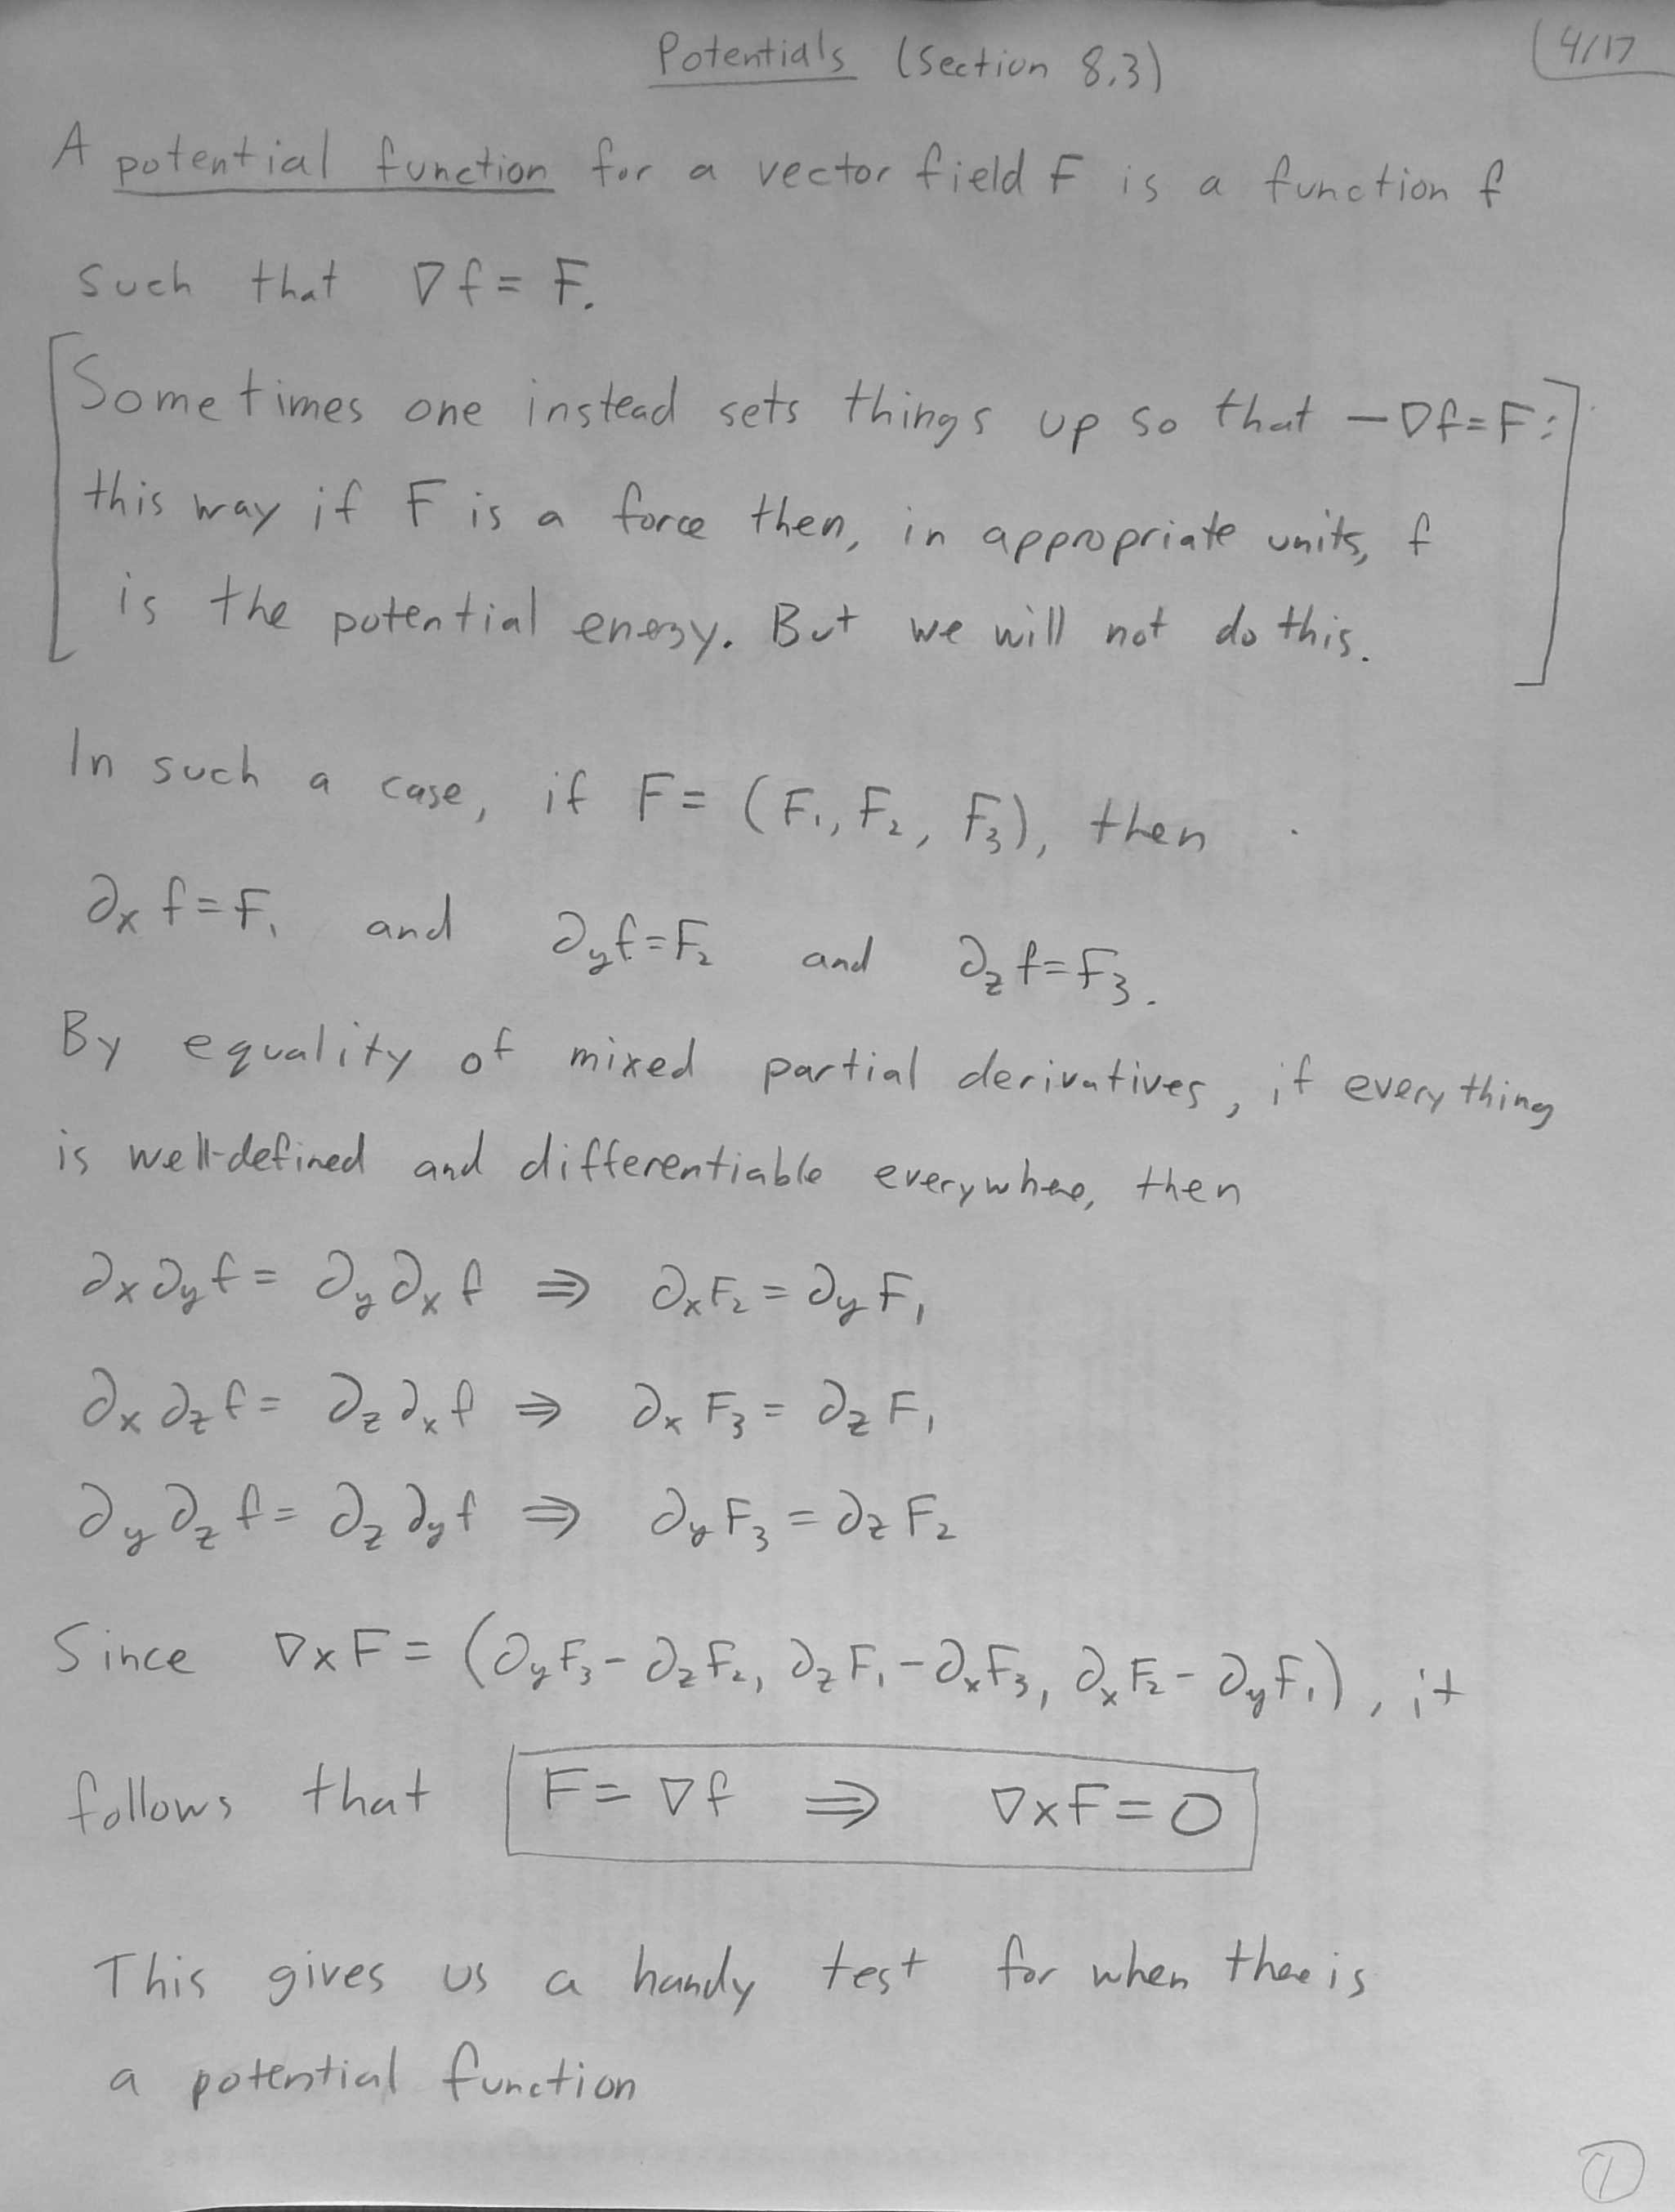 Potentials (Section 8.3)
4/17
A potential function for a vector field F is a function f
such that ∇f = F.
[Sometimes one instead sets things up so that −∇f = F:
this way if F is a force then, in appropriate units, f
is the potential energy. But we will not do this.]
In such a case, if F = (F₁, F₂, F₃), then
∂ₓf = F₁ and ∂_y f = F₂ and ∂_z f = F₃.
By equality of mixed partial derivatives, if everything
is well-defined and differentiable everywhere, then
∂ₓ∂_y f = ∂_y∂ₓf ⇒ ∂ₓF₂ = ∂_y F₁
∂ₓ∂_z f = ∂_z∂ₓf ⇒ ∂ₓF₃ = ∂_z F₁
∂_y∂_z f = ∂_z∂_y f ⇒ ∂_y F₃ = ∂_z F₂
Since ∇×F = (∂_y F₃ − ∂_z F₂, ∂_z F₁ − ∂ₓF₃, ∂ₓF₂ − ∂_y F₁), it
follows that F = ∇f ⇒ ∇×F = 0
This gives us a handy test for when there is
a potential function
1